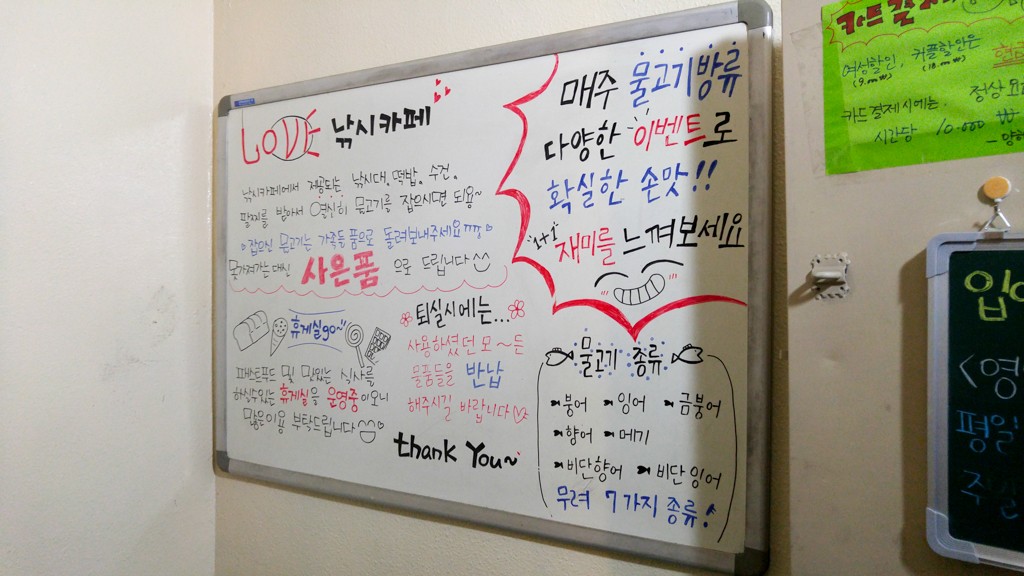 LOVE 낚시카페
낚시카페에서 제공되는 낚시대, 떡밥, 수건,
팔찌를 받아서 열심히 물고기를 잡으시면 되용~
잡으신 물고기는 가족들 품으로 돌려보내주세요
못가져가는 대신 사은품 으로 드립니다
휴게실go~
패스트푸드 및 맛있는 식사를
하실수있는 휴게실을 운영중 이오니
많은이용 부탁드립니다
퇴실시에는...
사용하셨던 모~든
물품들을 반납
해주시길 바랍니다
thank You~
매주 물고기방류
다양한 이벤트로
확실한 손맛!!
1+1 재미를 느껴보세요
물고기 종류
붕어 잉어 금붕어
향어 메기
비단향어 비단잉어
무려 7가지 종류!
카드결
여성할인, 커플할인은
(9.mw) (18.mw)
카드결제시에는 정상요
시간당 10.000 ₩
입
<영
평일
주말